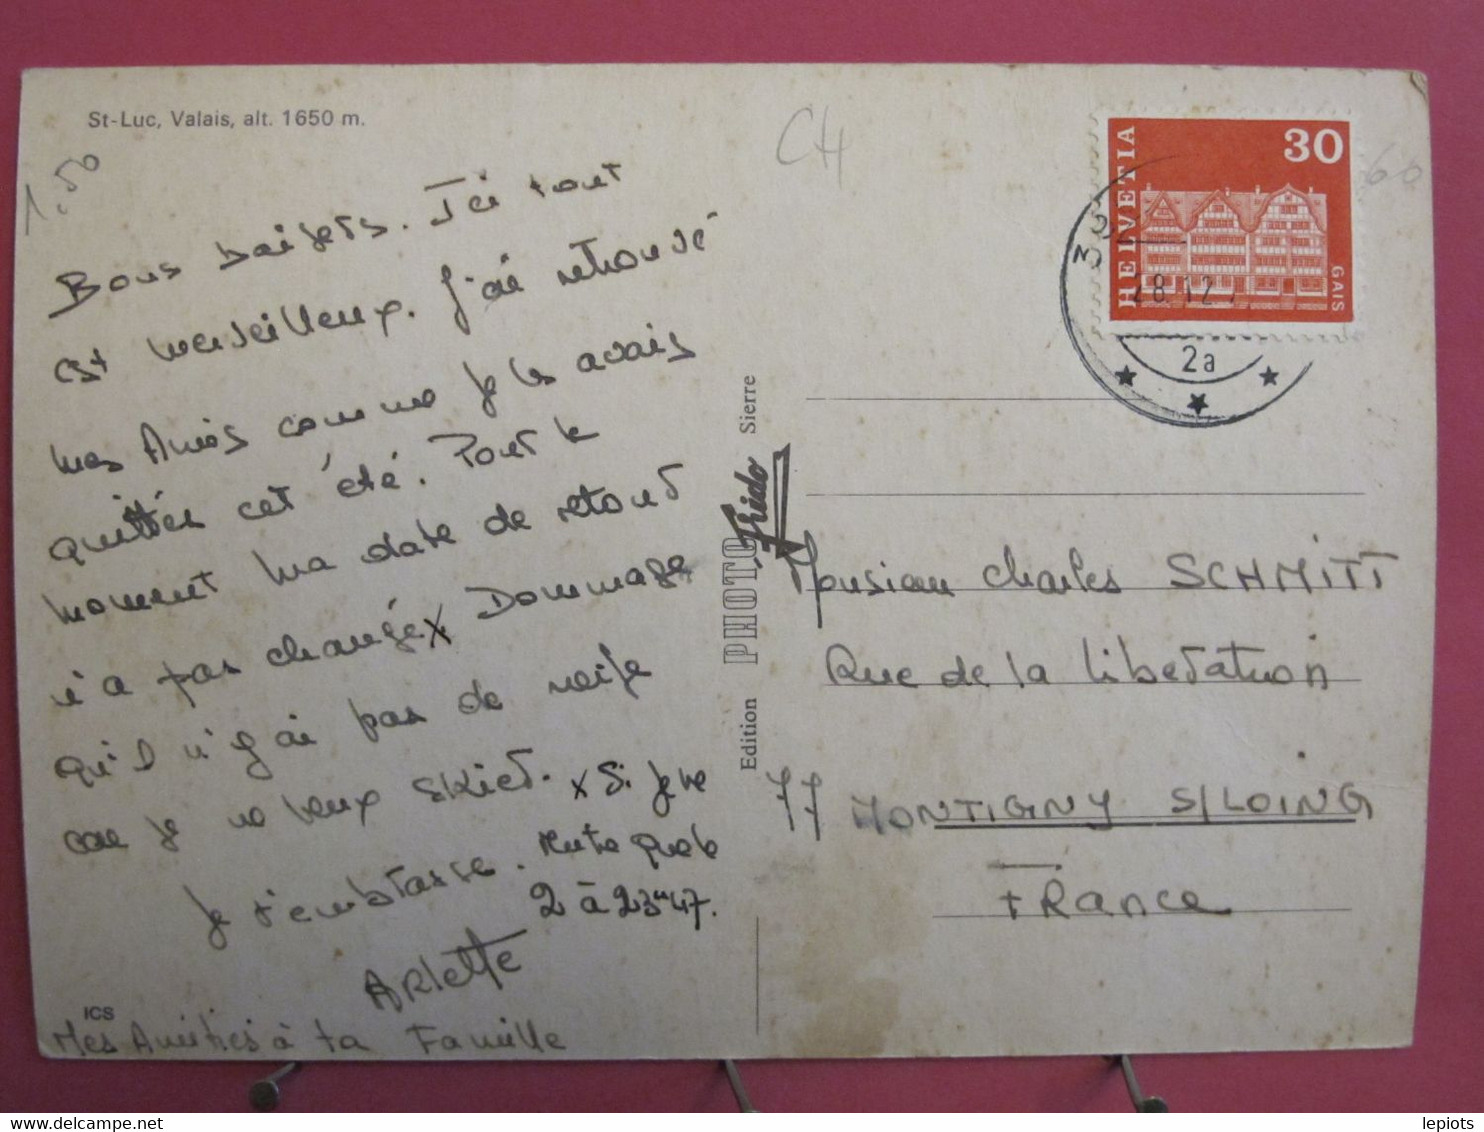 St-Luc, Valais, alt. 1650 m.
1.50
Bons baisers. Ici tout
est merveilleux. J'ai retrouvé
mes Amis comme je les avais
quittés cet été. Pour le
moment ma date de retour
n'a pas changée x Dommage
qu'il n'y ai pas de neige
car je ne peux skier.
Je t'embrasse.
x Si je te
le
2 à 23h47.
Arlette
ICS
Mes Amitiés à ta Famille
Edition PHOTO Frido Sierre
CH
60
HELVETIA
30
GAIS
28.12.
2a
Monsieur Charles SCHMITT
Rue de la libération
77 MONTIGNY S/LOING
FRance
lepiots